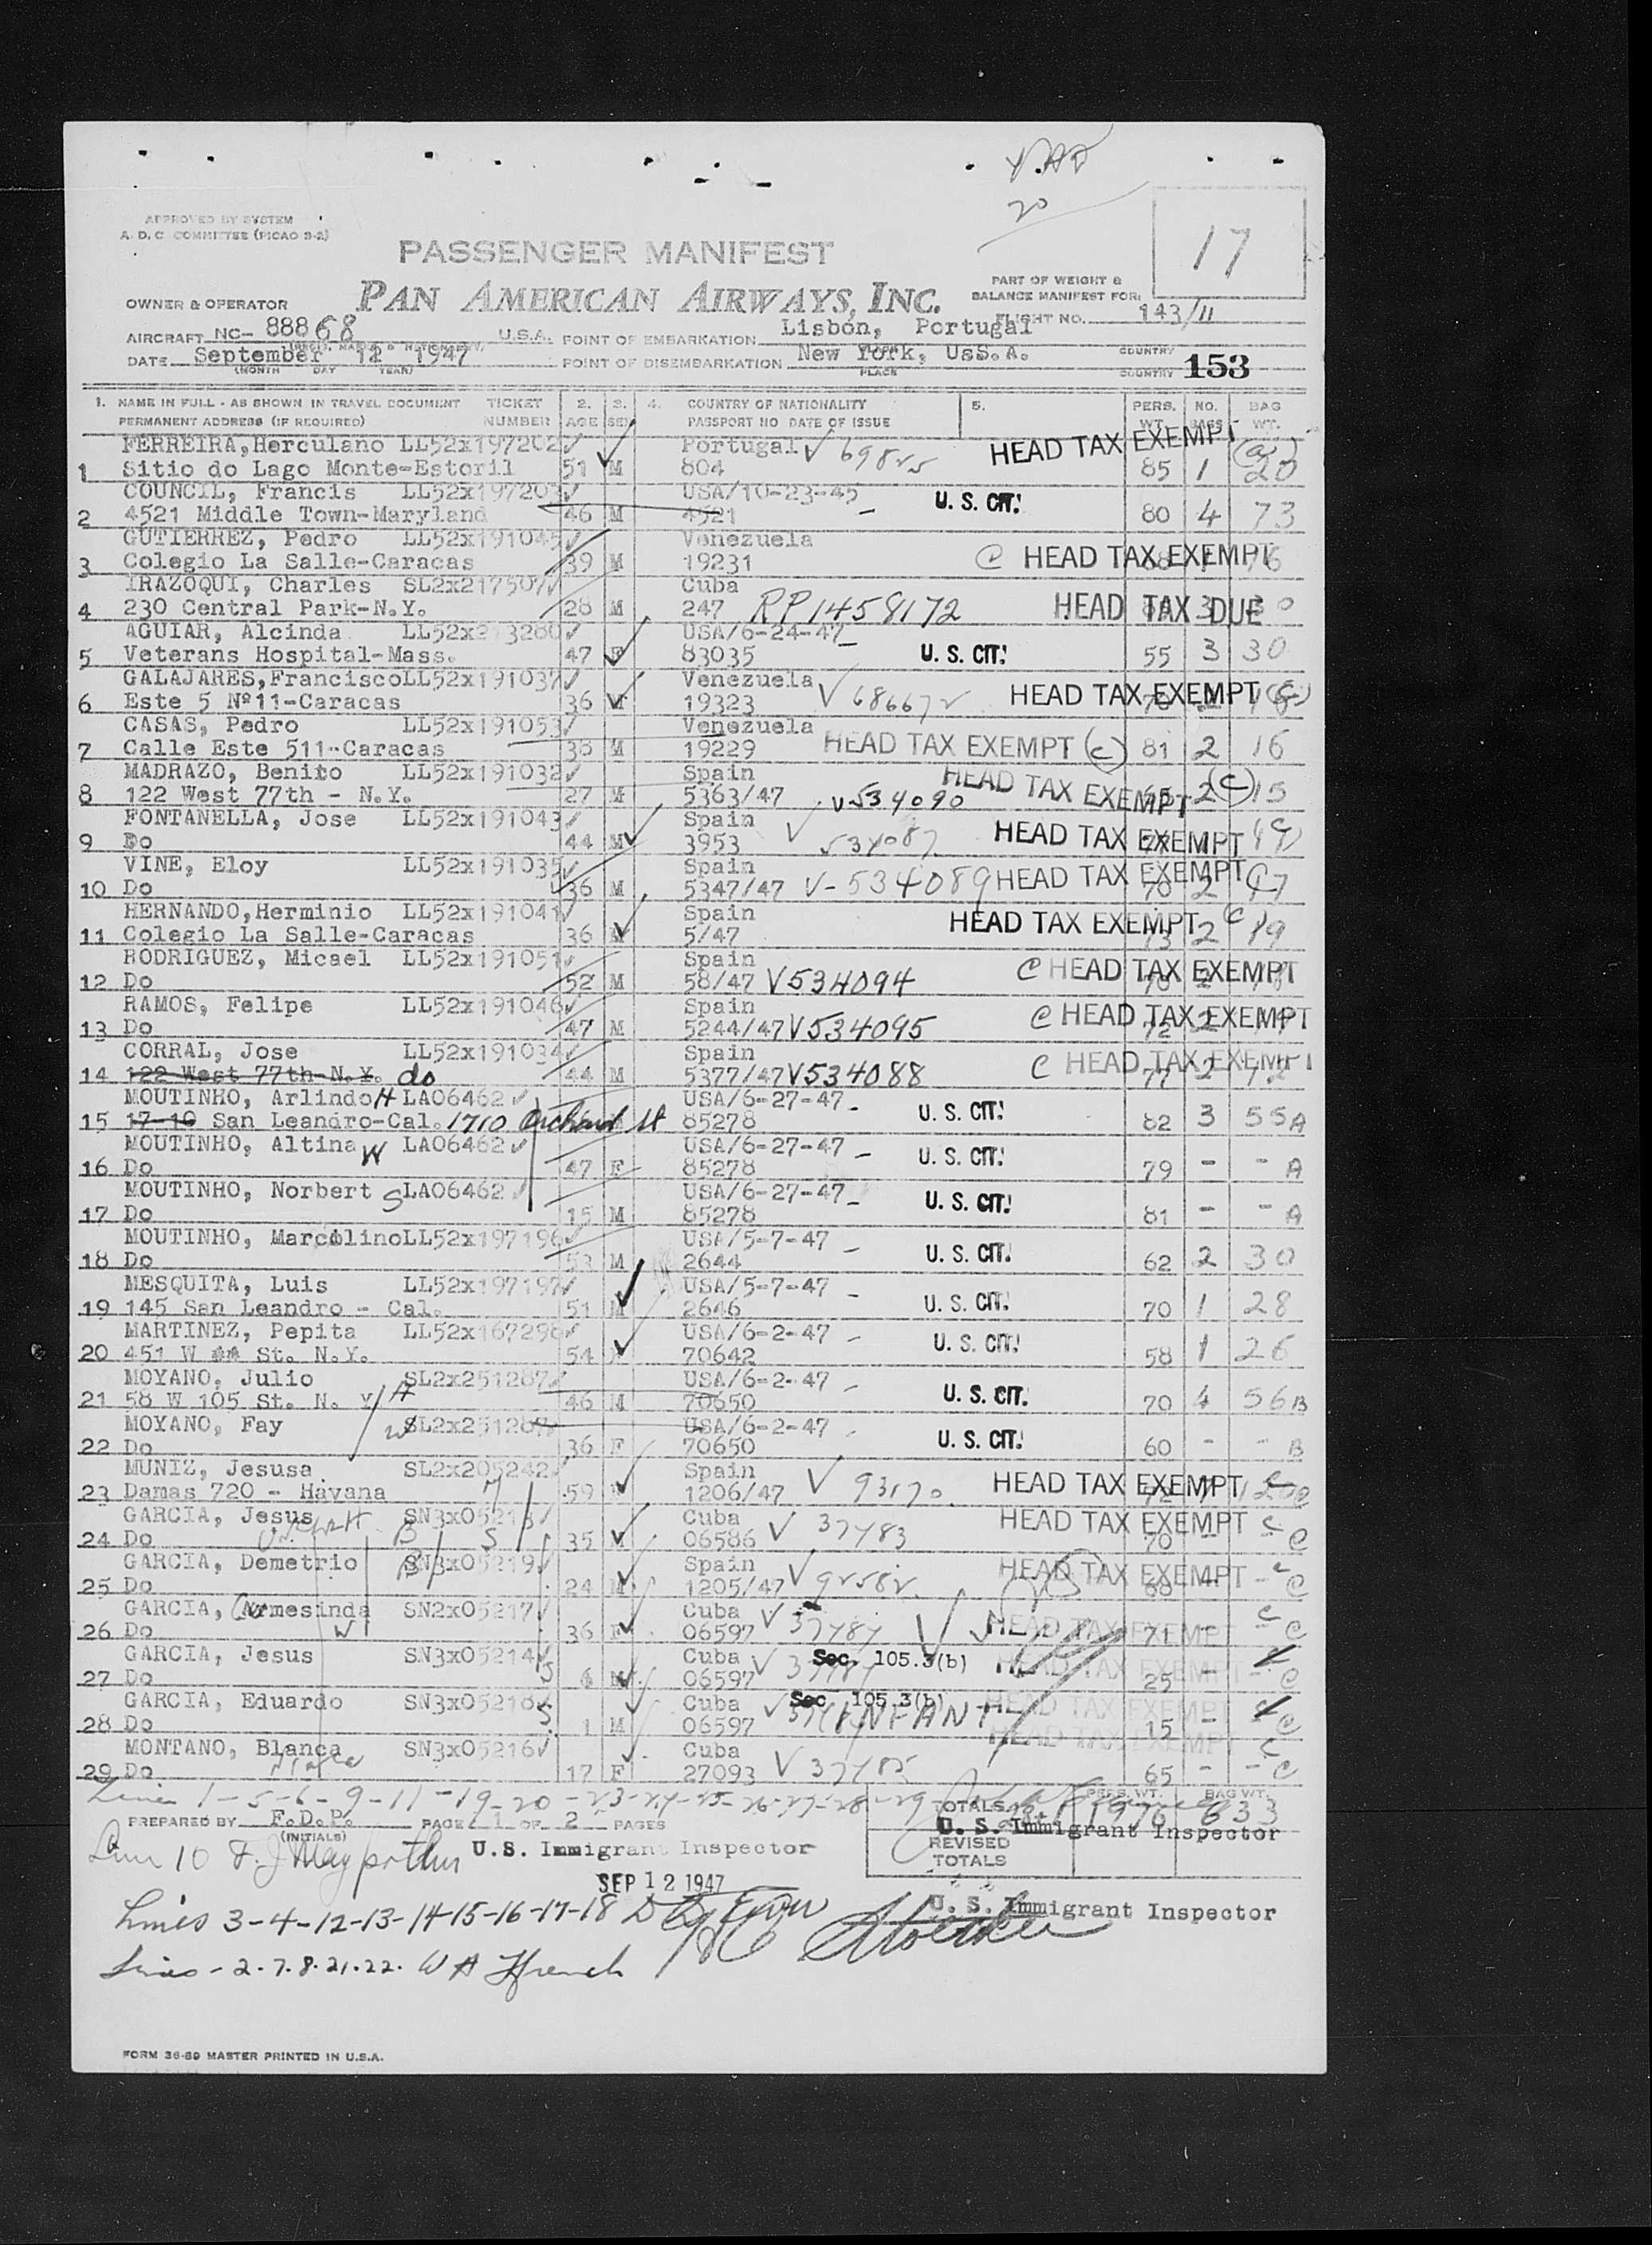 20
17
APPROVED BY SYSTEM
A. D. C. COMMITTEE (PICAO 9-2)
PASSENGER MANIFEST
PAN AMERICAN AIRWAYS, INC.
PART OF WEIGHT &
BALANCE MANIFEST FOR:
OWNER & OPERATOR
FLIGHT NO. 143/11
AIRCRAFT NC- 88868 U.S.A. POINT OF EMBARKATION Lisbon, Portugal
DATE September 12 1947 POINT OF DISEMBARKATION New York, UsS.A. COUNTRY 153
(MONTH DAY YEAR) PLACE COUNTRY
1. NAME IN FULL - AS SHOWN IN TRAVEL DOCUMENT TICKET 2. 3. 4. COUNTRY OF NATIONALITY 5. PERS. NO. BAG
PERMANENT ADDRESS (IF REQUIRED) NUMBER AGE SEX PASSPORT NO DATE OF ISSUE WT. BAGS WT.
FERREIRA,Herculano LL52x197202 Portugal HEAD TAX EXEMPT
1 Sitio do Lago Monte-Estoril 51 M 804 85 1 20
COUNCIL, Francis LL52x197203 USA/10-23-45 U. S. CIT.
2 4521 Middle Town-Maryland 46 M 4521 80 4 73
GUTIERREZ, Pedro LL52x191045 Venezuela
3 Colegio La Salle-Caracas 39 M 19231 C HEAD TAX EXEMPT
IRAZOQUI, Charles SL2x217507 Cuba
4 230 Central Park-N.Y. 28 M 247 RP1458172 HEAD TAX DUE
AGUIAR, Alcinda LL52x213280 USA/6-24-47 U. S. CIT.
5 Veterans Hospital-Mass. 47 83035 55 3 30
GALAJARES,FranciscoLL52x191037 Venezuela
6 Este 5 Nº11-Caracas 36 M 19323 V 686672 HEAD TAX EXEMPT
CASAS, Pedro LL52x191053 Venezuela
7 Calle Este 511-Caracas 38 M 19229 HEAD TAX EXEMPT (C) 81 2 16
MADRAZO, Benito LL52x191032 Spain HEAD TAX EXEMPT
8 122 West 77th - N.Y. 27 M 5363/47 V534090 2 (C) 15
FONTANELLA, Jose LL52x191043 Spain
9 Do 44 M 3953 V 534087 HEAD TAX EXEMPT
VINE, Eloy LL52x191035 Spain HEAD TAX EXEMPT
10 Do 36 M 5347/47 V-534089 70 2 17
HERNANDO,Herminio LL52x191041 Spain HEAD TAX EXEMPT C
11 Colegio La Salle-Caracas 36 M 5/47 73 2 19
RODRIGUEZ, Micael LL52x191051 Spain C HEAD TAX EXEMPT
12 Do 52 M 58/47 V534094
RAMOS, Felipe LL52x191046 Spain C HEAD TAX EXEMPT
13 Do 47 M 5244/47 V534095 72
CORRAL, Jose LL52x191034 Spain C HEAD TAX EXEMPT
14 122 West 77th-N.Y. do 44 M 5377/47 V534088 77 2 12
MOUTINHO, Arlindo H LA06462 USA/6-27-47 U. S. CIT.
15 17-10 San Leandro-Cal. 1710 Orchard St 85278 82 3 55 A
MOUTINHO, Altina W LA06462 USA/6-27-47 U. S. CIT.
16 Do 47 F 85278 79 - - A
MOUTINHO, Norbert S LA06462 USA/6-27-47 U. S. CIT.
17 Do 15 M 85278 81 - - A
MOUTINHO, MarcolinoLL52x197196 USA/5-7-47 U. S. CIT.
18 Do 53 M 2644 62 2 30
MESQUITA, Luis LL52x197197 USA/5-7-47 U. S. CIT.
19 145 San Leandro - Cal. 51 M 2646 70 1 28
MARTINEZ, Pepita LL52x167296 USA/6-2-47 U. S. CIT.
20 451 W St. N.Y. 54 F 70642 58 1 26
MOYANO, Julio SL2x251287 USA/6-2-47 U. S. CIT.
21 58 W 105 St. N. Y H 46 M 70650 70 4 56 B
MOYANO, Fay W SL2x251287 USA/6-2-47 U. S. CIT.
22 Do 36 F 70650 60 - - B
MUNIZ, Jesusa SL2x205242 Spain
23 Damas 720 - Havana 59 1206/47 V 93170 HEAD TAX EXEMPT
GARCIA, Jesus SN3x05213 Cuba HEAD TAX EXEMPT C
24 Do 35 M 06586 V 37483 70 - C
GARCIA, Demetrio SN3x05219 Spain HEAD TAX EXEMPT
25 Do 24 M 1205/47 V 92582 68 - C
GARCIA, Armesinda SN2x05217 Cuba
26 Do W 36 F 06597 V 37484 HEAD TAX EXEMPT 71 - - C
GARCIA, Jesus SN3x05214 S Cuba Sec. 105.3(b) HEAD TAX EXEMPT
27 Do 6 M 06597 25 - - C
GARCIA, Eduardo SN3x05218 S Cuba Sec. 105.3(b) HEAD TAX EXEMPT
28 Do 1 M 06597 INFANT 15 - C
MONTANO, Blanca SN3x05216 Cuba HEAD TAX EXEMPT C
29 Do Niece 17 F 27093 V 37485 65 - - C
Lines 1-5-6-9-11-19-20-23-24-25-26-27-28-29
PERS. WT. BAG WT.
TOTALS 1976 633
PREPARED BY F.D.P. PAGE 1 OF 2 PAGES U. S. Immigrant Inspector
(INITIALS)
REVISED
TOTALS
Line 10 F. J. U.S. Immigrant Inspector
SEP 12 1947
Lines 3-4-12-13-14-15-16-17-18
U. S. Immigrant Inspector
Lines - 2.7.8.21.22. W A Ffrench
FORM 36-89 MASTER PRINTED IN U.S.A.